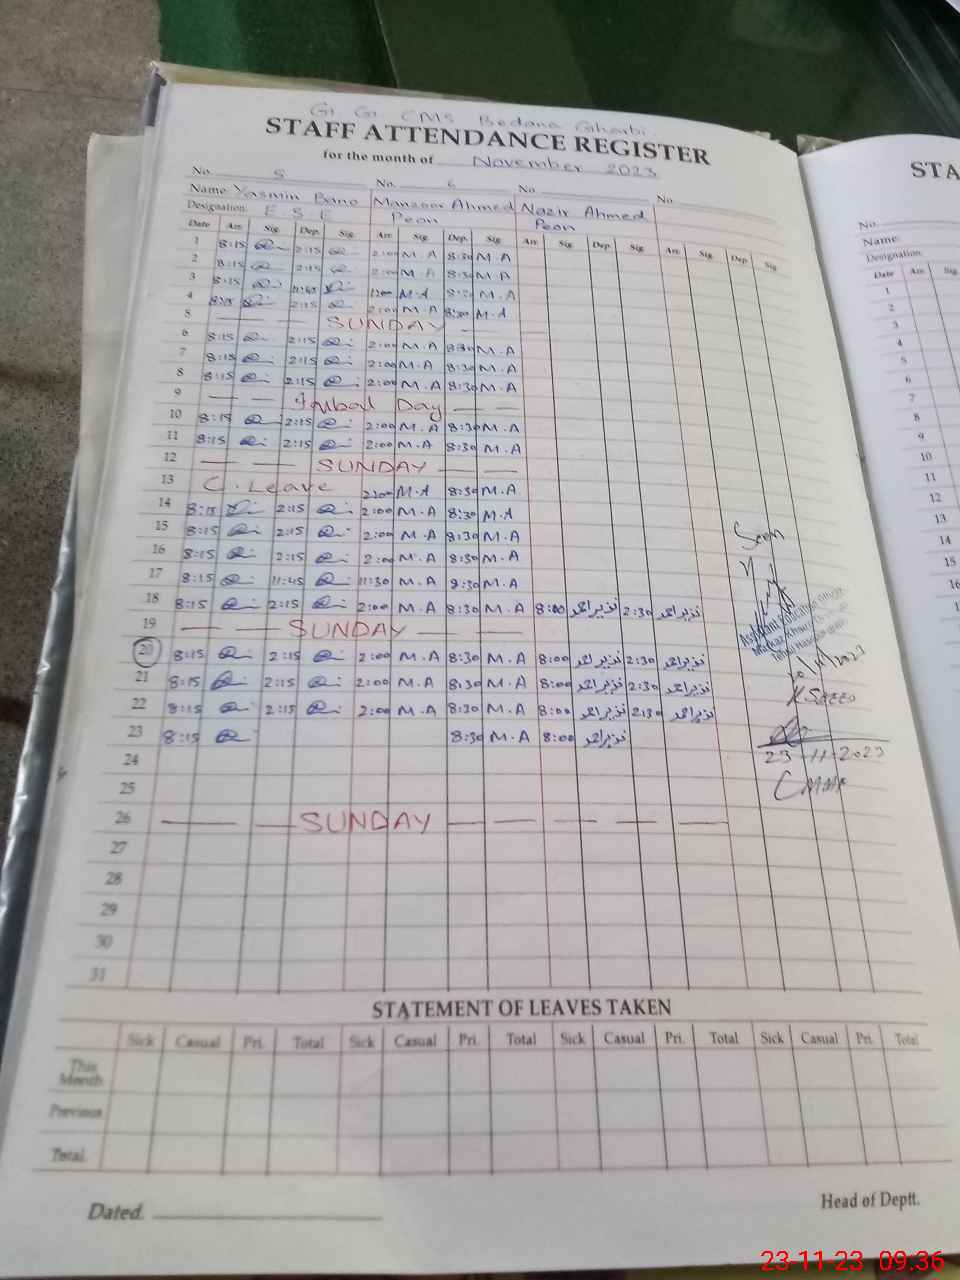 G G CMS Bedana Gharbi
STAFF ATTENDANCE REGISTER
for the month of November 2023
No. 5 No. 6 No. No.
Name Yasmin Bano Manzoor Ahmed Nazir Ahmed
Designation: E.S.E Peon Peon
Date Arr. Sig. Dep. Sig. Arr. Sig. Dep. Sig. Arr. Sig. Dep. Sig. Arr. Sig. Dep. Sig.
1 8:15 2:15 2:00 M.A 8:30 M.A
2 8:15 2:15 2:00 M.A 8:30 M.A
3 8:15 11:45 M.A M.A
4 8:15 2:15 2:00 M.A 8:30 M.A
5 SUNDAY
6 8:15 2:15 2:00 M.A 8:30 M.A
7 8:15 2:15 2:00 M.A 8:30 M.A
8 8:15 2:15 2:00 M.A 8:30 M.A
9 Day
10 8:15 2:15 2:00 M.A 8:30 M.A
11 8:15 2:15 2:00 M.A 8:30 M.A
12 SUNDAY
13 C. Leave 2:00 M.A 8:30 M.A
14 8:15 2:15 2:00 M.A 8:30 M.A
15 8:15 2:15 2:00 M.A 8:30 M.A
16 8:15 2:15 2:00 M.A 8:30 M.A
17 8:15 11:45 11:30 M.A 8:30 M.A
18 8:15 2:15 2:00 M.A 8:30 M.A 8:00 نذیر احمد 2:30 نذیر احمد
19 SUNDAY
20 8:15 2:15 2:00 M.A 8:30 M.A 8:00 نذیر احمد 2:30 نذیر احمد
21 8:15 2:15 2:00 M.A 8:30 M.A 8:00 نذیر احمد 2:30 نذیر احمد
22 8:15 2:15 2:00 M.A 8:30 M.A 8:00 نذیر احمد 2:30 نذیر احمد
23 8:15 8:30 M.A 8:00 نذیر احمد
24
25
26 SUNDAY
27
28
29
30
31
Seen
Assistant Education Officer
23-11-2023
STATEMENT OF LEAVES TAKEN
Sick Casual Pri. Total Sick Casual Pri. Total Sick Casual Pri. Total Sick Casual Pri. Total
This Month
Previous
Total
Dated.
Head of Deptt.
STA
No.
Name
Designation
Date Arr. Sig.
1
2
3
4
5
6
7
8
9
10
11
12
13
14
15
16
23-11-23 09:36